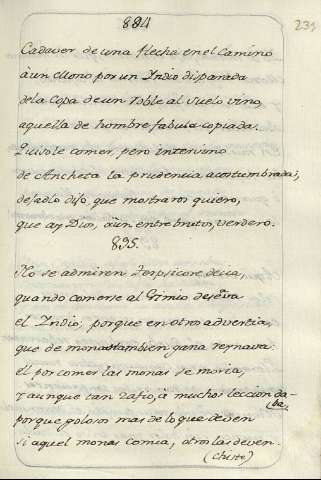 894
231
Cadaver de una flecha en el Camino
à un Mono por un Indio disparada
de la Copa de un roble al suelo vino,
aquella de hombre fabula copiada.
Quisole comer, pero intervino
de Ancheta la prudencia acostumbrada;
desadio dijo, que mostraros quiero,
que ay Dios, aùn entre brutos, verdero.
895.
No se admiren Terpsicore decia,
quando comerse al Gimio deseava
el Indio; porque en otros advertia,
que de monas tambien gana reynava:
èl por comer las monas se moria,
y aunque tan zafio, à muchos leccion da-
ba,
porque golosos mas de lo que deven
si aquel monas comia, otros las beven.
(chiste)